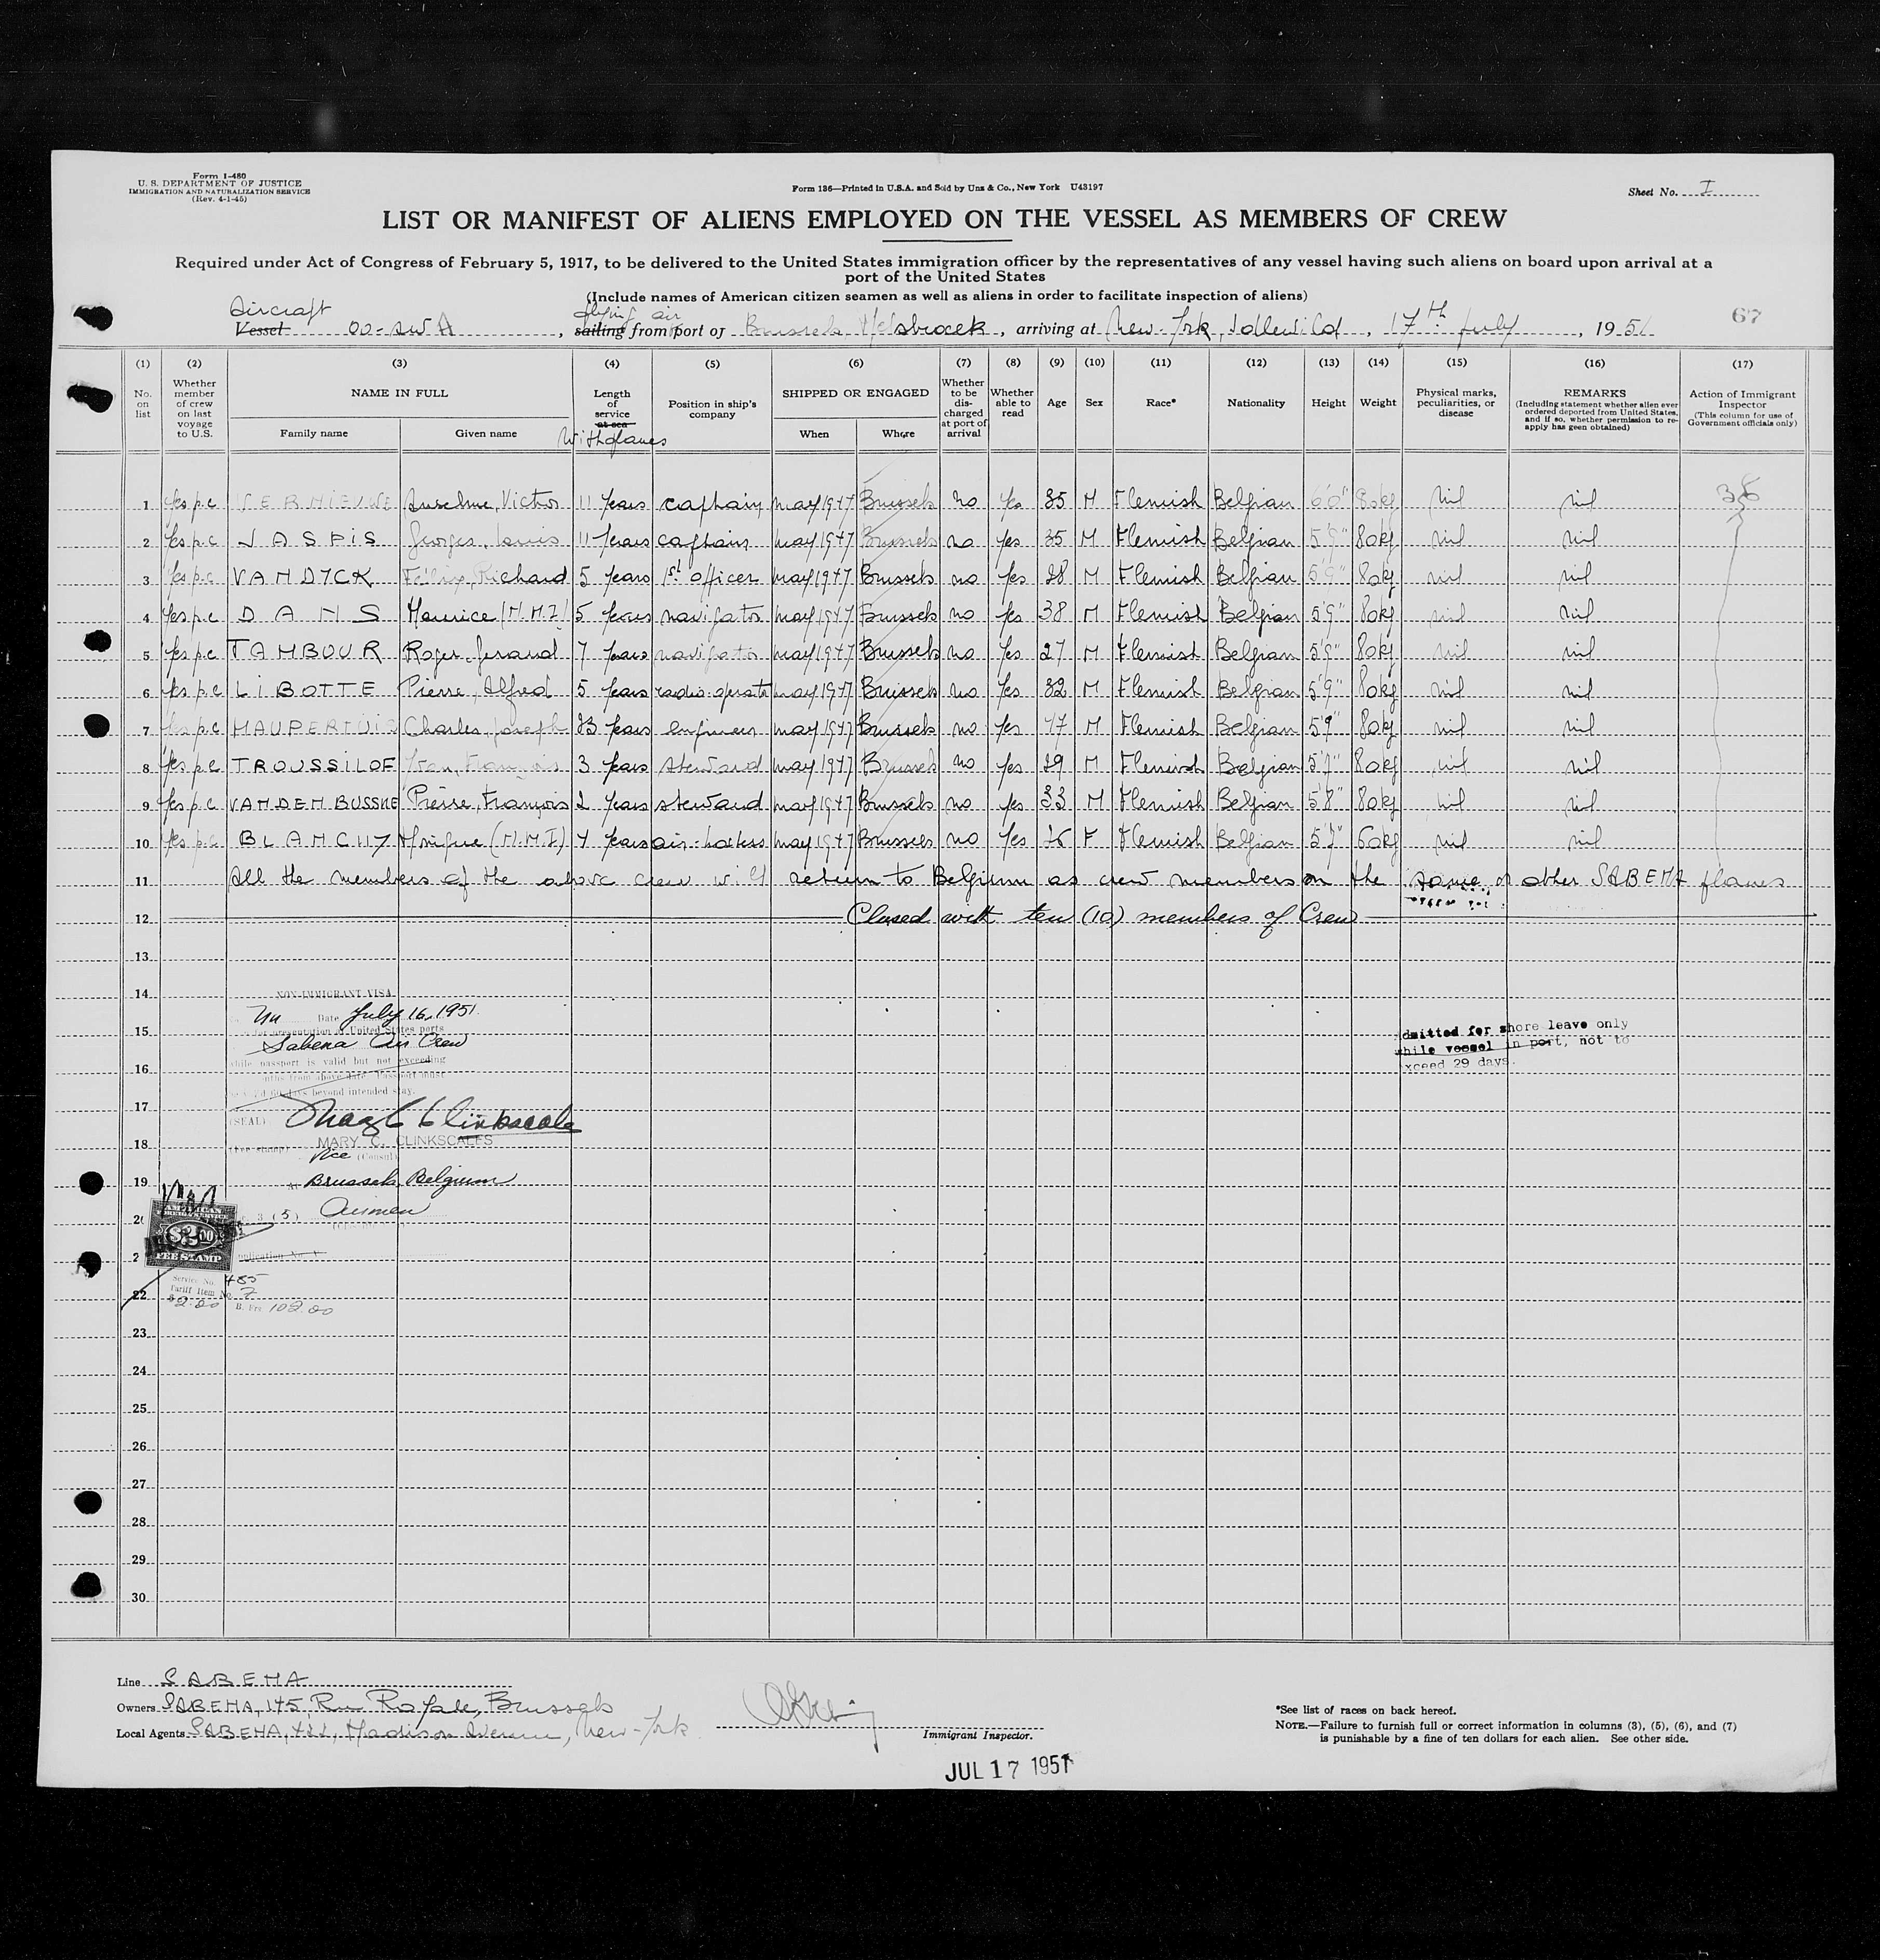 Form I-480
U. S. DEPARTMENT OF JUSTICE
IMMIGRATION AND NATURALIZATION SERVICE
(Rev. 4-1-45)
Form 136—Printed in U.S.A. and Sold by Unz & Co., New York U43197
Sheet No. I
LIST OR MANIFEST OF ALIENS EMPLOYED ON THE VESSEL AS MEMBERS OF CREW
Required under Act of Congress of February 5, 1917, to be delivered to the United States immigration officer by the representatives of any vessel having such aliens on board upon arrival at a
port of the United States
(Include names of American citizen seamen as well as aliens in order to facilitate inspection of aliens)
Aircraft flying air
Vessel OO-AWA, sailing from port of Brussels, Melsbroek, arriving at New-York, Idlewild, 17th July, 1951
67
(1) (2) (3) (4) (5) (6) (7) (8) (9) (10) (11) (12) (13) (14) (15) (16) (17)
No. on list
Whether member of crew on last voyage to U.S.
NAME IN FULL
Family name Given name
Length of service at sea
With planes
Position in ship's company
SHIPPED OR ENGAGED
When Where
Whether to be discharged at port of arrival
Whether able to read
Age
Sex
Race*
Nationality
Height
Weight
Physical marks, peculiarities, or disease
REMARKS
(Including statement whether alien ever ordered deported from United States, and if so, whether permission to re-apply has geen obtained)
Action of Immigrant Inspector
(This column for use of Government officials only)
1 Yes p.c VERNIEUWE Anselme, Victor 11 Years captain may 1947 Brussels no Yes 35 M Flemish Belgian 6'0" 80kg nil nil 38
2 Yes p.c JASPIS Georges, Louis 11 Years captain may 1947 Brussels no Yes 35 M Flemish Belgian 5'9" 80kg nil nil
3 Yes p.c VANDYCK Félix, Richard 5 Years 1st officer may 1947 Brussels no Yes 28 M Flemish Belgian 5'9" 80kg nil nil
4 Yes p.c DANS Maurice (N.M.I) 5 Years navigator may 1947 Brussels no Yes 38 M Flemish Belgian 5'9" 80kg nil nil
5 Yes p.c TAMBOUR Roger, Gerand 7 Years navigator may 1947 Brussels no Yes 27 M Flemish Belgian 5'9" 80kg nil nil
6 Yes p.c LIBOTTE Pierre, Alfred 5 Years radio-operator may 1947 Brussels no Yes 32 M Flemish Belgian 5'9" 80kg nil nil
7 Yes p.c MAUPERTUIS Charles, Joseph 23 Years engineer may 1947 Brussels no Yes 47 M Flemish Belgian 5'9" 80kg nil nil
8 Yes p.c TROUSSILOF Yvan, François 3 Years steward may 1947 Brussels no Yes 29 M Flemish Belgian 5'7" 80kg nil nil
9 Yes p.c VANDEN BUSSCHE Pierre, François 2 Years steward may 1947 Brussels no Yes 33 M Flemish Belgian 5'8" 80kg nil nil
10 Yes p.c BLANCHY Monique (N.M.I) 4 Years air-hostess may 1947 Brussels no Yes 26 F Flemish Belgian 5'7" 60kg nil nil
11 All the members of the above crew will return to Belgium as crew members on the same or other SABENA planes
12 Closed with ten (10) members of Crew
13
14 NON-IMMIGRANT VISA
Date July 16, 1951
15 for presentation at United States ports
Sabena Air Crew
while passport is valid but not exceeding
16 months from above date. Passport must
60 days beyond intended stay.
17 (SEAL) Mary C Clinkscales
MARY C. CLINKSCALES
18 (Fee stamp) Vice (Consul)
19 At Brussels, Belgium
20 3 (5) Airmen
AMERICAN FOREIGN SERVICE
$2.00
FEE STAMP
Application No. V
Service No. 485
Tariff Item No. 7
22 $2.00 B. Frs 102.00
Admitted for shore leave only
while vessel in port, not to
exceed 29 days.
23
24
25
26
27
28
29
30
Line SABENA
Owners SABENA, 145, Rue Royale, Brussels
Local Agents SABENA, 422, Madison Avenue, New-York
Immigrant Inspector.
JUL 17 1951
*See list of races on back hereof.
NOTE.—Failure to furnish full or correct information in columns (3), (5), (6), and (7)
is punishable by a fine of ten dollars for each alien. See other side.